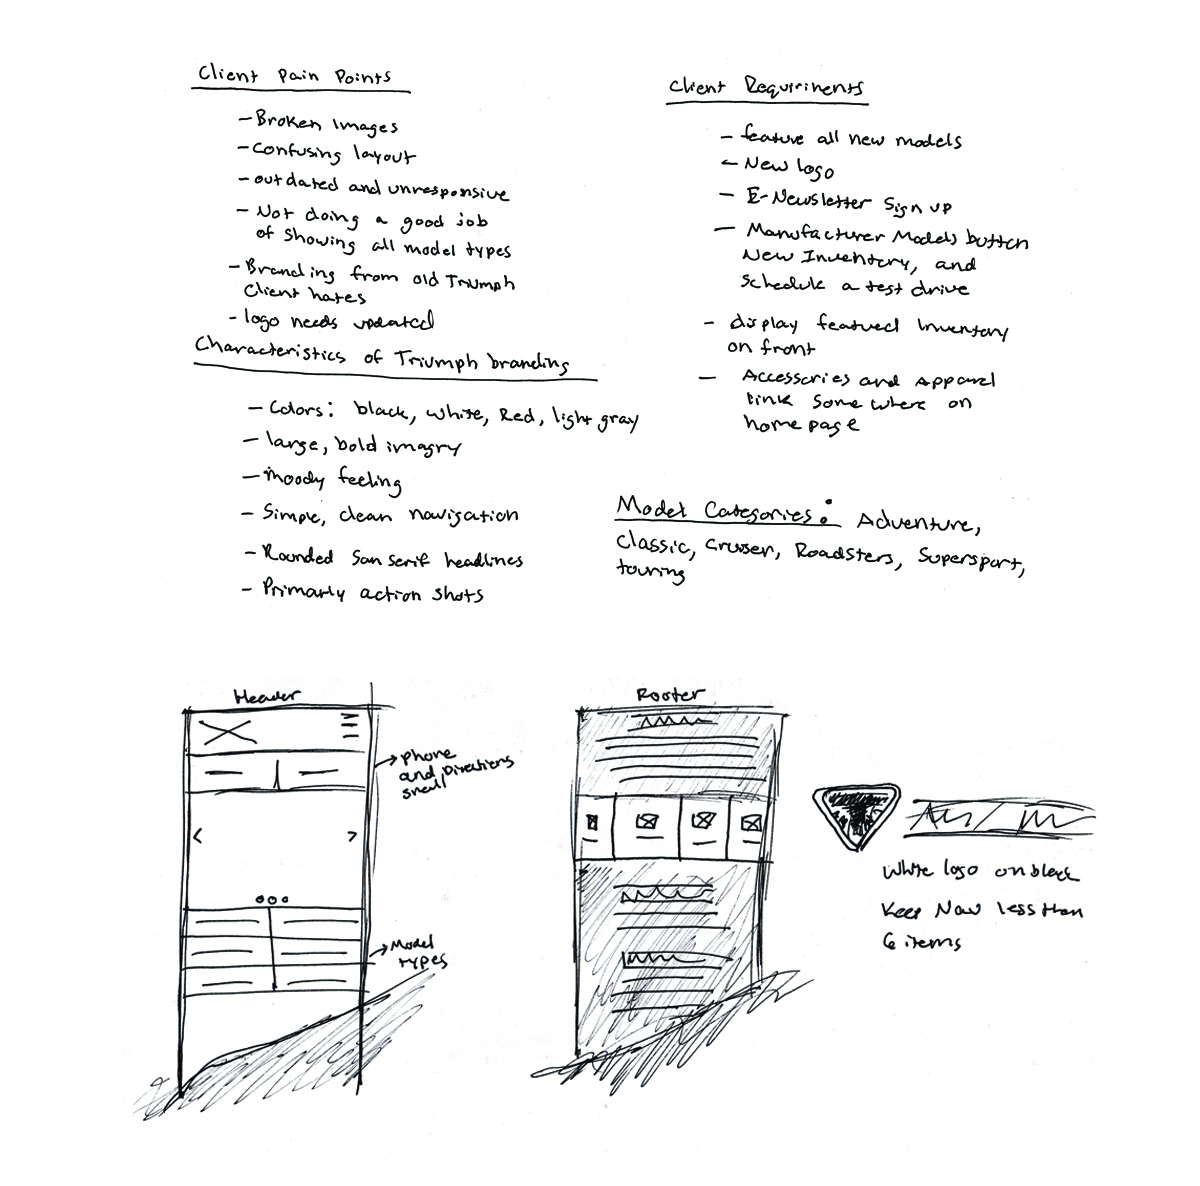 Client Pain Points
- Broken Images
- Confusing layout
- outdated and unresponsive
- Not doing a good job
of showing all model types
- Branding from old Triumph
Client hates
- logo needs updated
Characteristics of Triumph branding
- Colors: black, white, Red, light gray
- large, bold imagry
- moody feeling
- Simple, clean navigation
- Rounded San serif headlines
- Primarly action shots
Client Requirments
- feature all new models
- New logo
- E-Newsletter Sign up
- Manufacturer Models button
New Inventory, and
schedule a test drive
- display featured Inventory
on front
- Accessories and Apparel
link somewhere on
homepage
Model Categories: Adventure,
Classic, Cruiser, Roadsters, Supersport,
touring
Header
Phone
and Directions
small
Model
types
Footer
White logo on black
Keep Nav less than
6 items